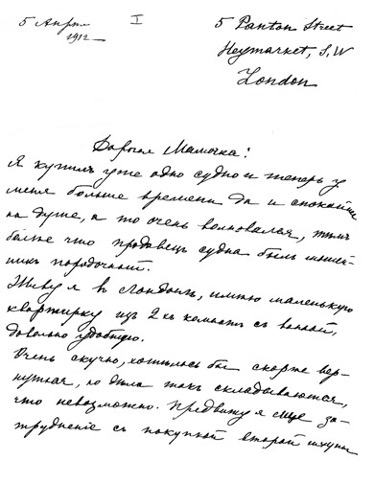 5 Апрѣля I 5 Panton Street
1912 Heymarket, S.W
London
Дорогая Мамочка!
Я купилъ уже одно судно и теперь у
меня больше времени да и спокойнѣе
на душѣ, а то очень волновался, тѣмъ
болѣе что продавецъ судна былъ мошен-
никъ порядочный.
Живу я въ Лондонѣ, имѣю маленькую
квартирку изъ 2хъ комнатъ съ ванной,
довольно удобную.
Очень скучно, хотѣлось бы скорѣе вер-
нуться, но дѣла такъ складываются,
что невозможно. Предвижу я еще за-
трудненіе съ покупкой второй шхуны